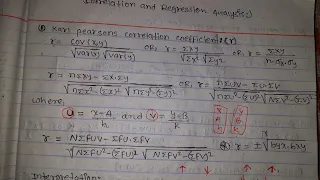 Correlation and Regression Analysis:
① Karl pearsons correlation coefficient:(r)
r = COV(x,y) / √var(x) √var(y) OR, r = Σxy / √Σx² √Σy² OR r = Σxy / n·σx·σy
r = nΣxy - Σx·Σy / √nΣx²-(Σx)² √nΣy²-(Σy)² OR, r = nΣUV - ΣU·ΣV / √nΣU²-(ΣU)² √NΣV²-(ΣV)²
where,
U = x-A / h and V = y-B / k
r = NΣfUV - ΣfU·ΣfV / √NΣfU²-(ΣfU)² √NΣfV²-(ΣfV)² OR r = ±√byx·bxy
Interpretation:-